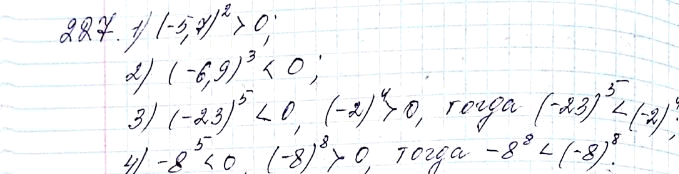 227. 1) (-5,7)² > 0;
2) (-6,9)³ < 0;
3) (-23)⁵ < 0, (-2)⁴ > 0, тогда (-23)⁵ < (-2)⁴;
4) -8⁵ < 0, (-8)⁸ > 0, тогда -8⁸ < (-8)⁸.